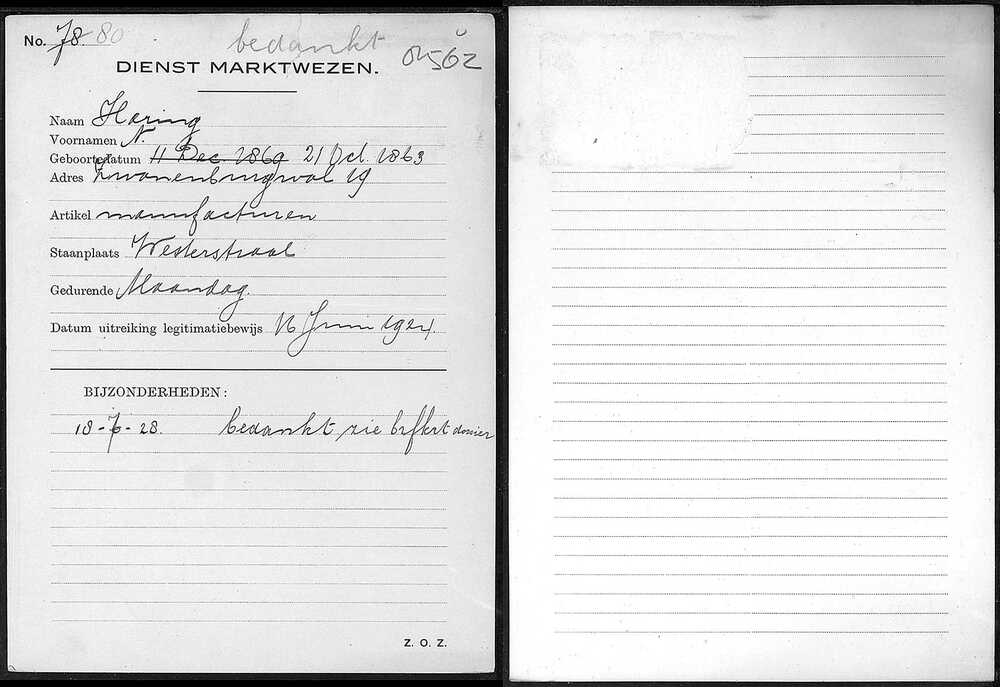 No. 78 80
bedankt
DIENST MARKTWEZEN.
Naam Haring
Voornamen N.
Geboortedatum 11 Dec. 1869 21 Oct. 1863
Adres Zwanenburgwal 19
Artikel manufacturen
Staanplaats Westerstraat
Gedurende Maandag.
Datum uitreiking legitimatiebewijs 16 Juni 1924.
BIJZONDERHEDEN:
18-7-28. bedankt zie dossier
Z. O. Z.